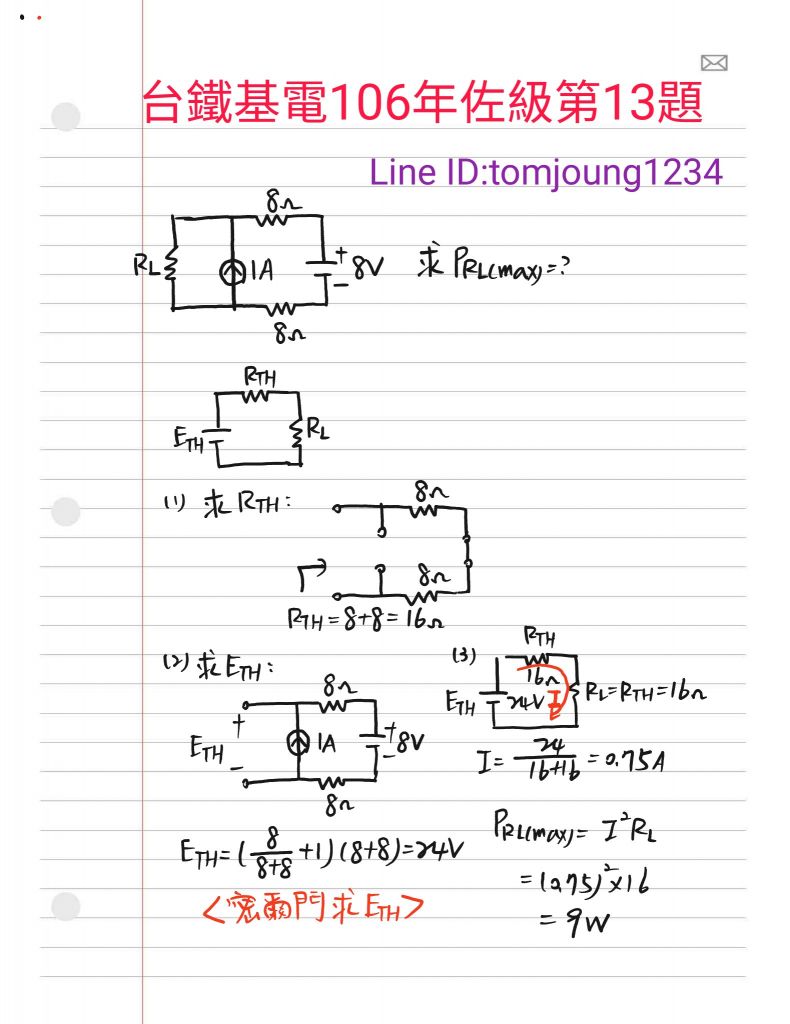 台鐵基電106年佐級第13題
Line ID:tomjoung1234
8Ω
RL
1A
+
8V
-
求 PRL(max)=?
8Ω
RTH
ETH
RL
(1) 求 RTH:
8Ω
8Ω
RTH=8+8=16Ω
(2) 求 ETH:
8Ω
+
ETH
-
1A
+
8V
-
8Ω
ETH=(8/(8+8)+1)(8+8)=24V
<密爾門求 ETH>
(3)
RTH
16Ω
ETH
24V
I
RL=RTH=16Ω
I=24/(16+16)=0.75A
PRL(max)=I²RL
=(0.75)²×16
=9W